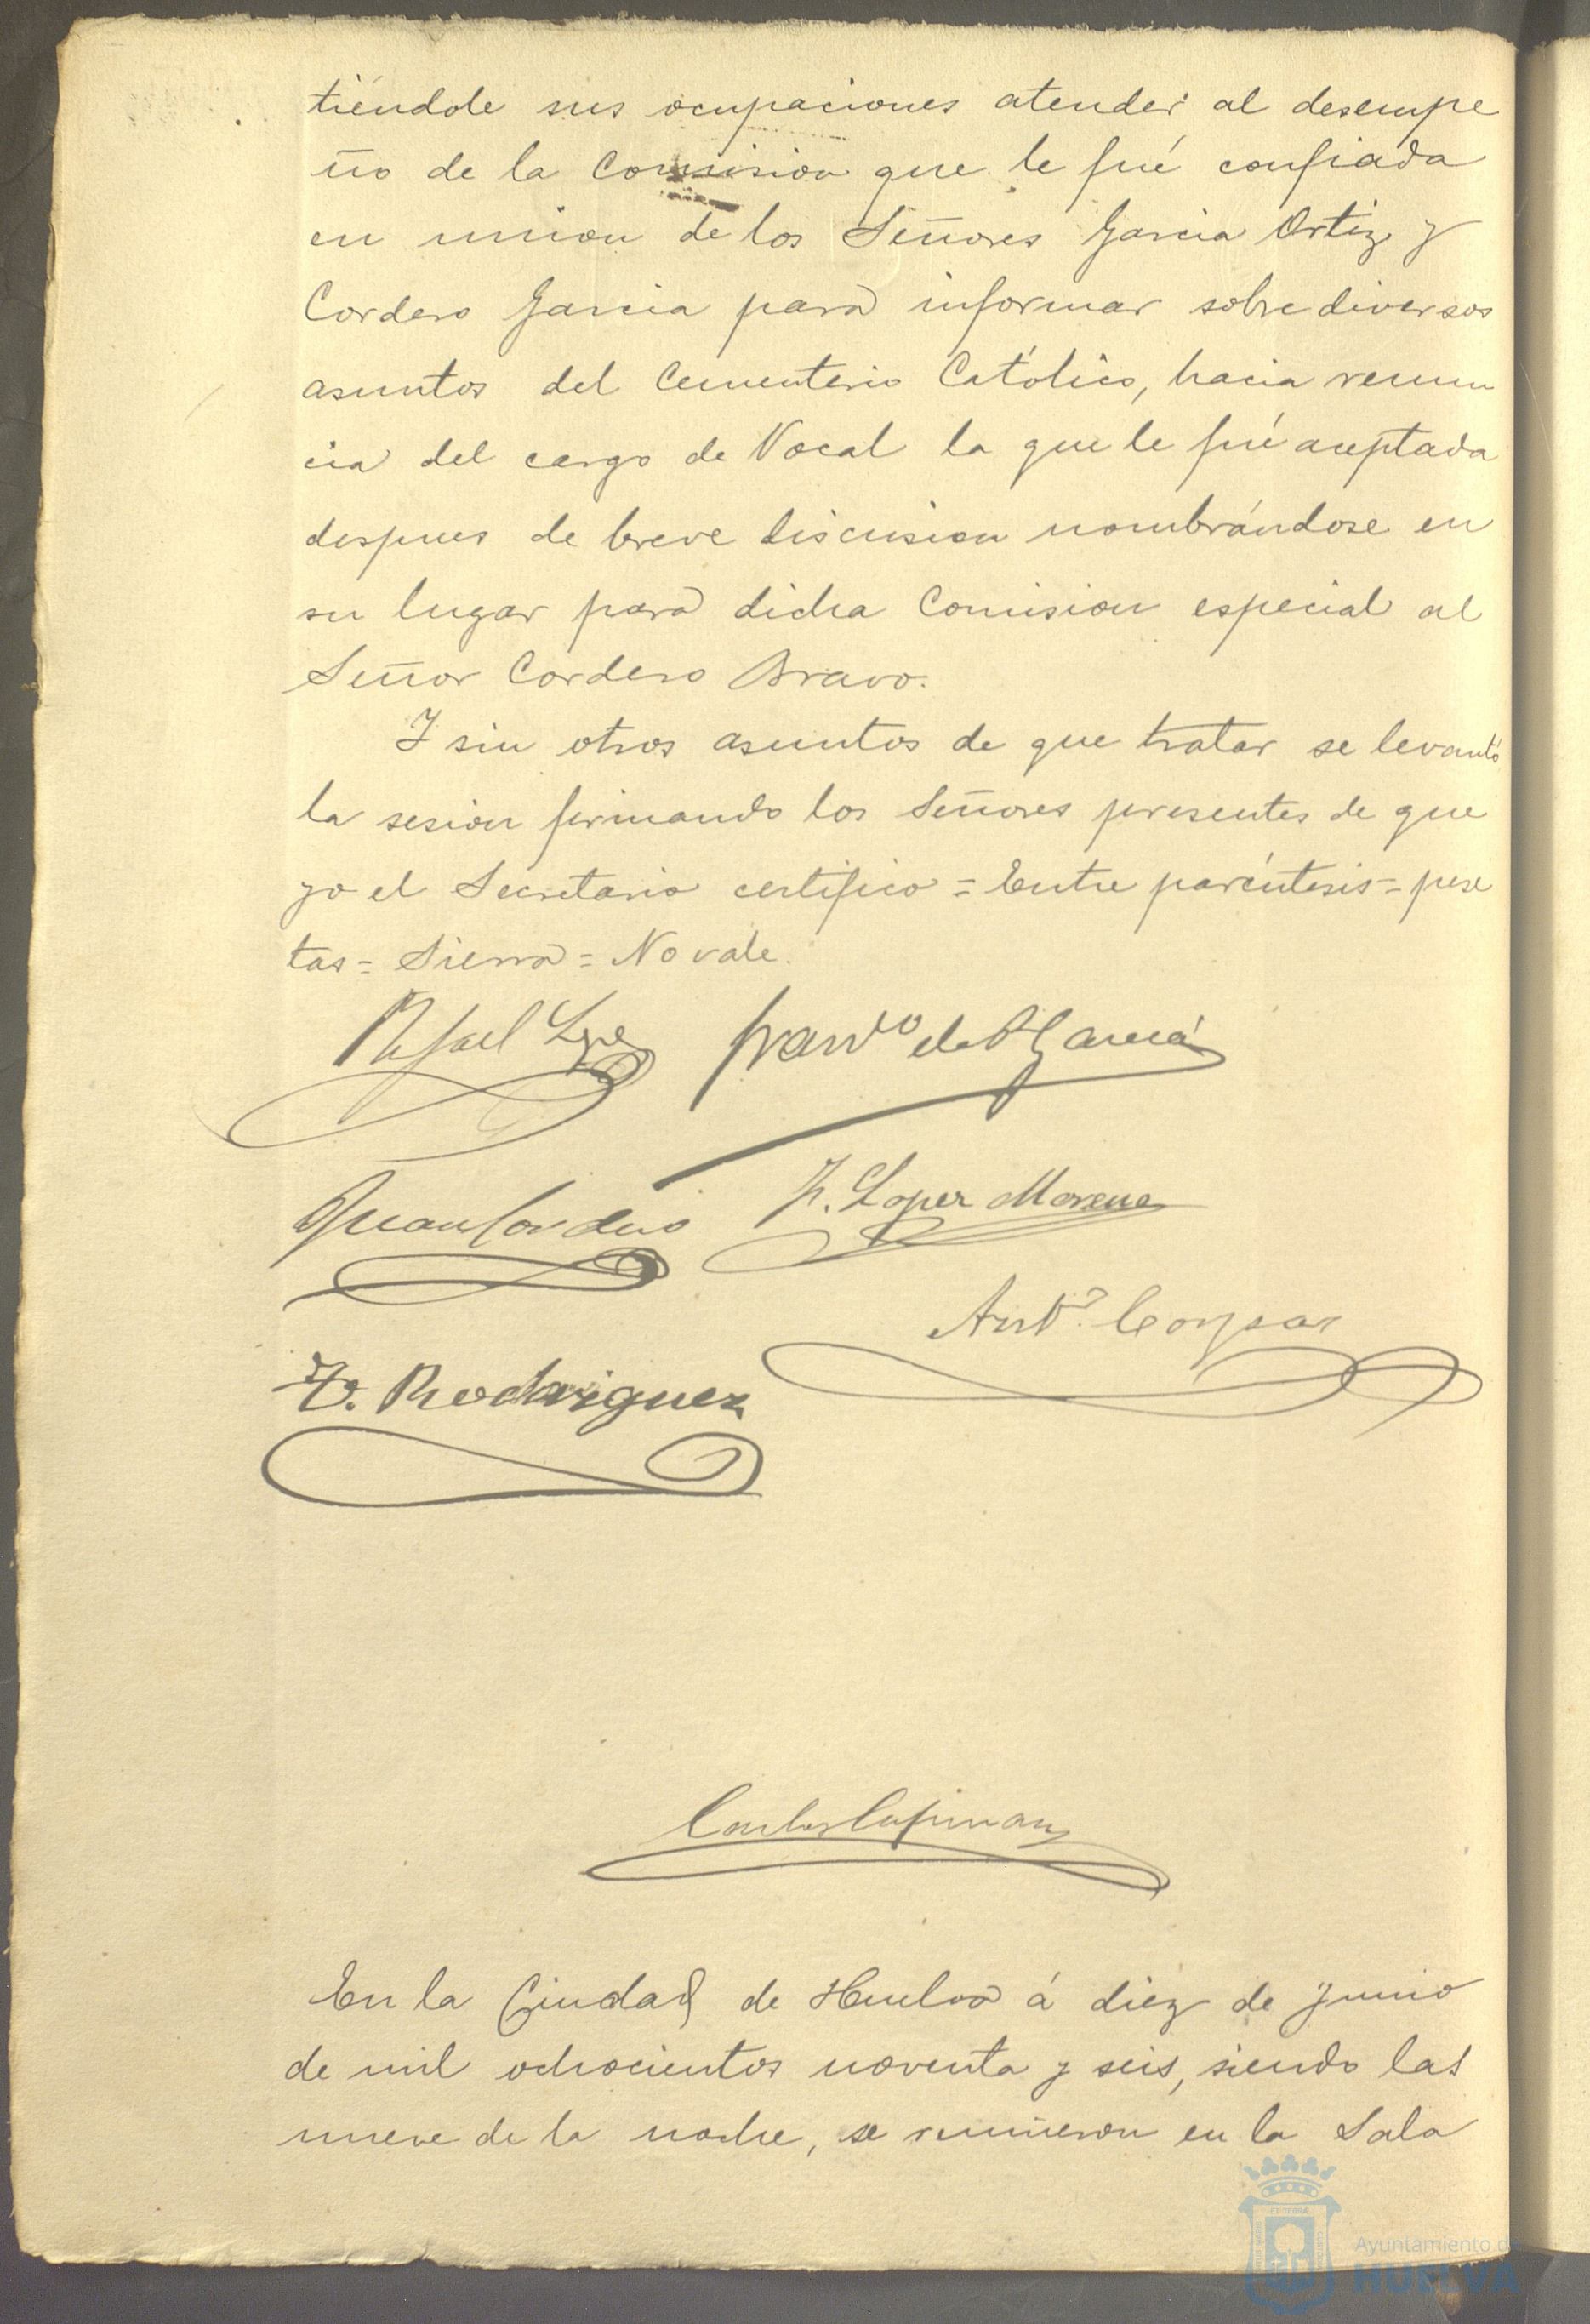 tiéndole sus ocupaciones atender al desempe
ño de la Comision que le fué confiada
en union de los Señores Garcia Ortiz y
Cordero Garcia para informar sobre diversos
asuntos del Cementerio Católico, hacia renun
cia del cargo de Vocal la que le fué aceptada
despues de breve discusion nombrándose en
su lugar para dicha Comision especial al
Señor Cordero Bravo.
Y sin otros asuntos de que tratar se levantó
la sesion firmando los Señores presentes de que
yo el Secretario certifico = Entre paréntesis = pese
tas = Sierra = No vale.
Rafael
Garcia
Juan Cordero
F. Lopez Moreno
Antº. Corpas
Rodriguez
En la Ciudad de Huelva á diez de Junio
de mil ochocientos noventa y seis, siendo las
nueve de la noche, se reunieron en la Sala
Ayuntamiento de
HUELVA